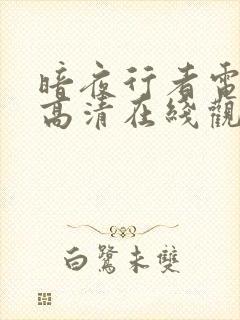 暗夜行者電
高清在綫觀
白鷺未雙